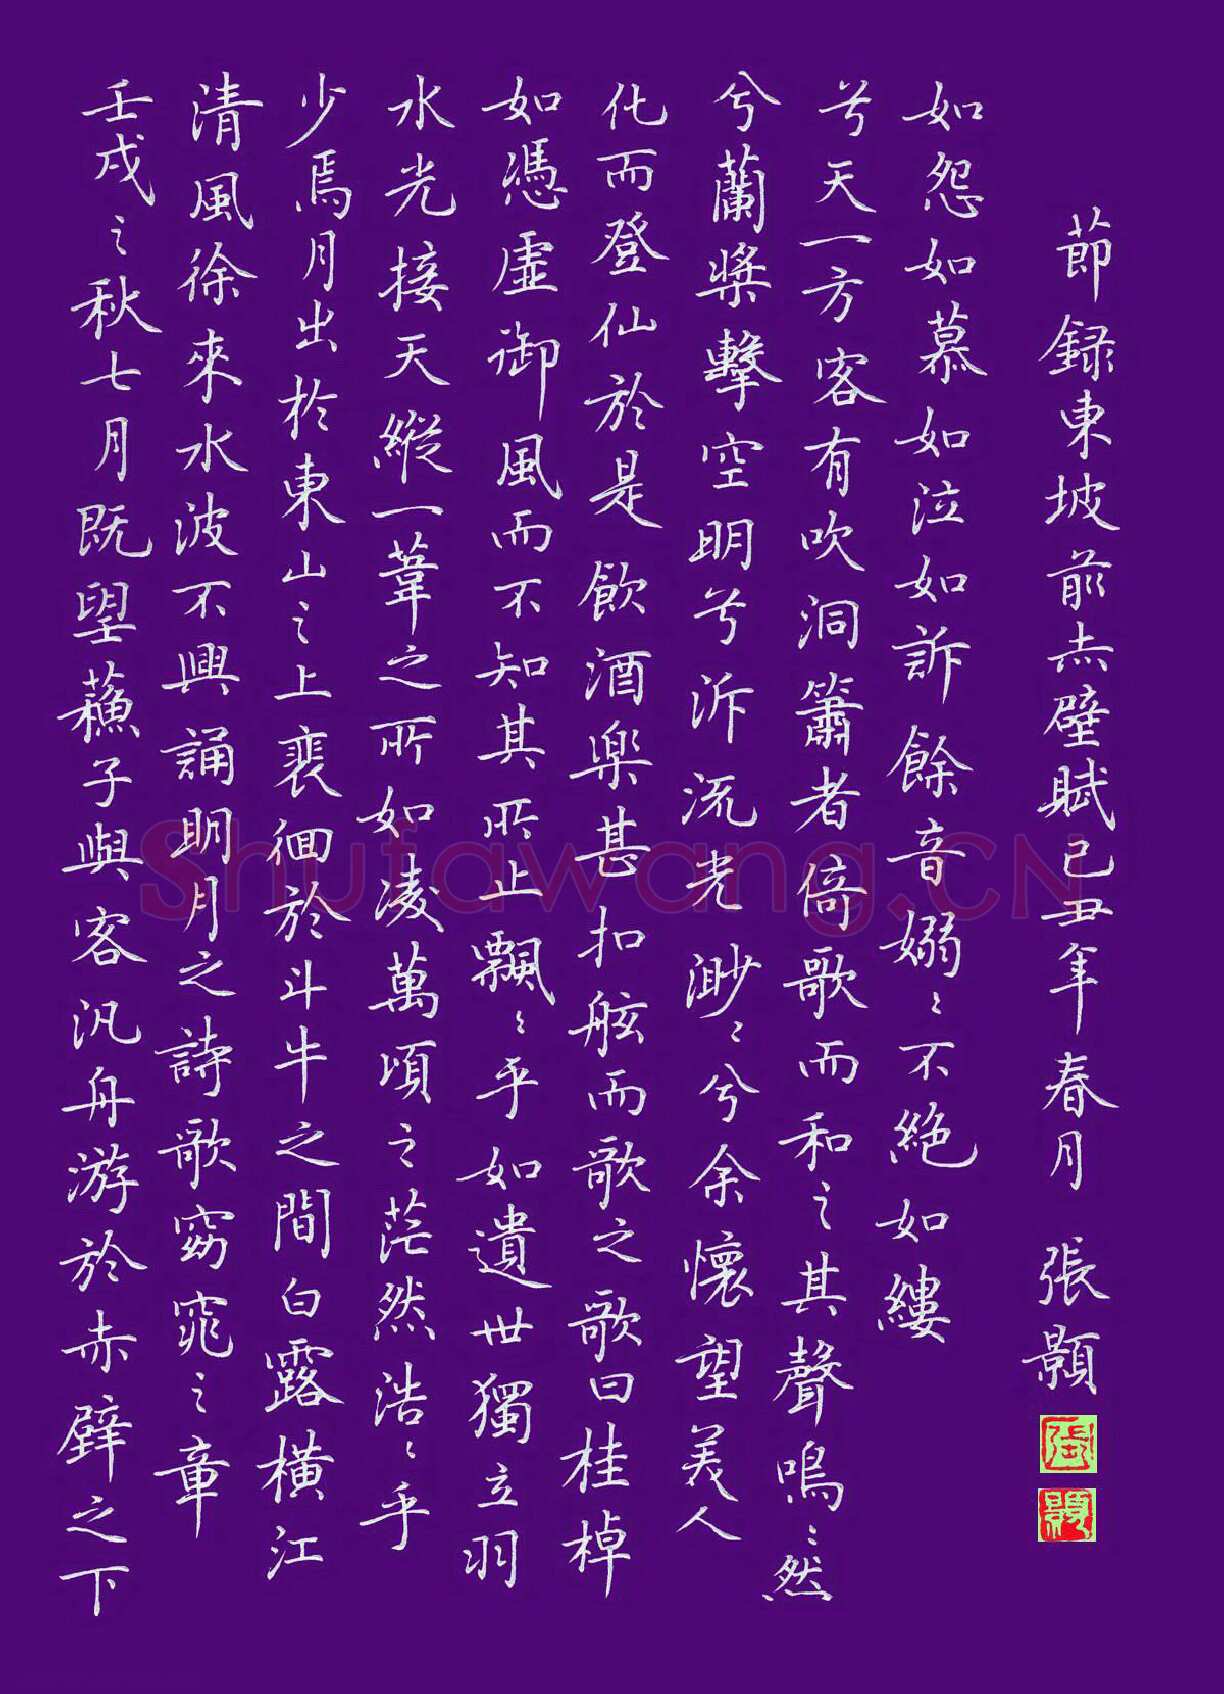 壬戌之秋七月既望蘇子與客汎舟游於赤壁之下
清風徐來水波不興誦明月之詩歌窈窕之章
少焉月出於東山之上裵徊於斗牛之間白露橫江
水光接天縱一葦之所如凌萬頃之茫然浩〻乎
如憑虛御風而不知其所止飄〻乎如遺世獨立羽
化而登仙於是飲酒樂甚扣舷而歌之歌曰桂棹
兮蘭槳擊空明兮泝流光渺〻兮余懷望美人
兮天一方客有吹洞簫者倚歌而和之其聲嗚〻然
如怨如慕如泣如訴餘音嫋〻不絕如縷
節錄東坡前赤壁賦己丑年春月 張顥
Shufawang.CN